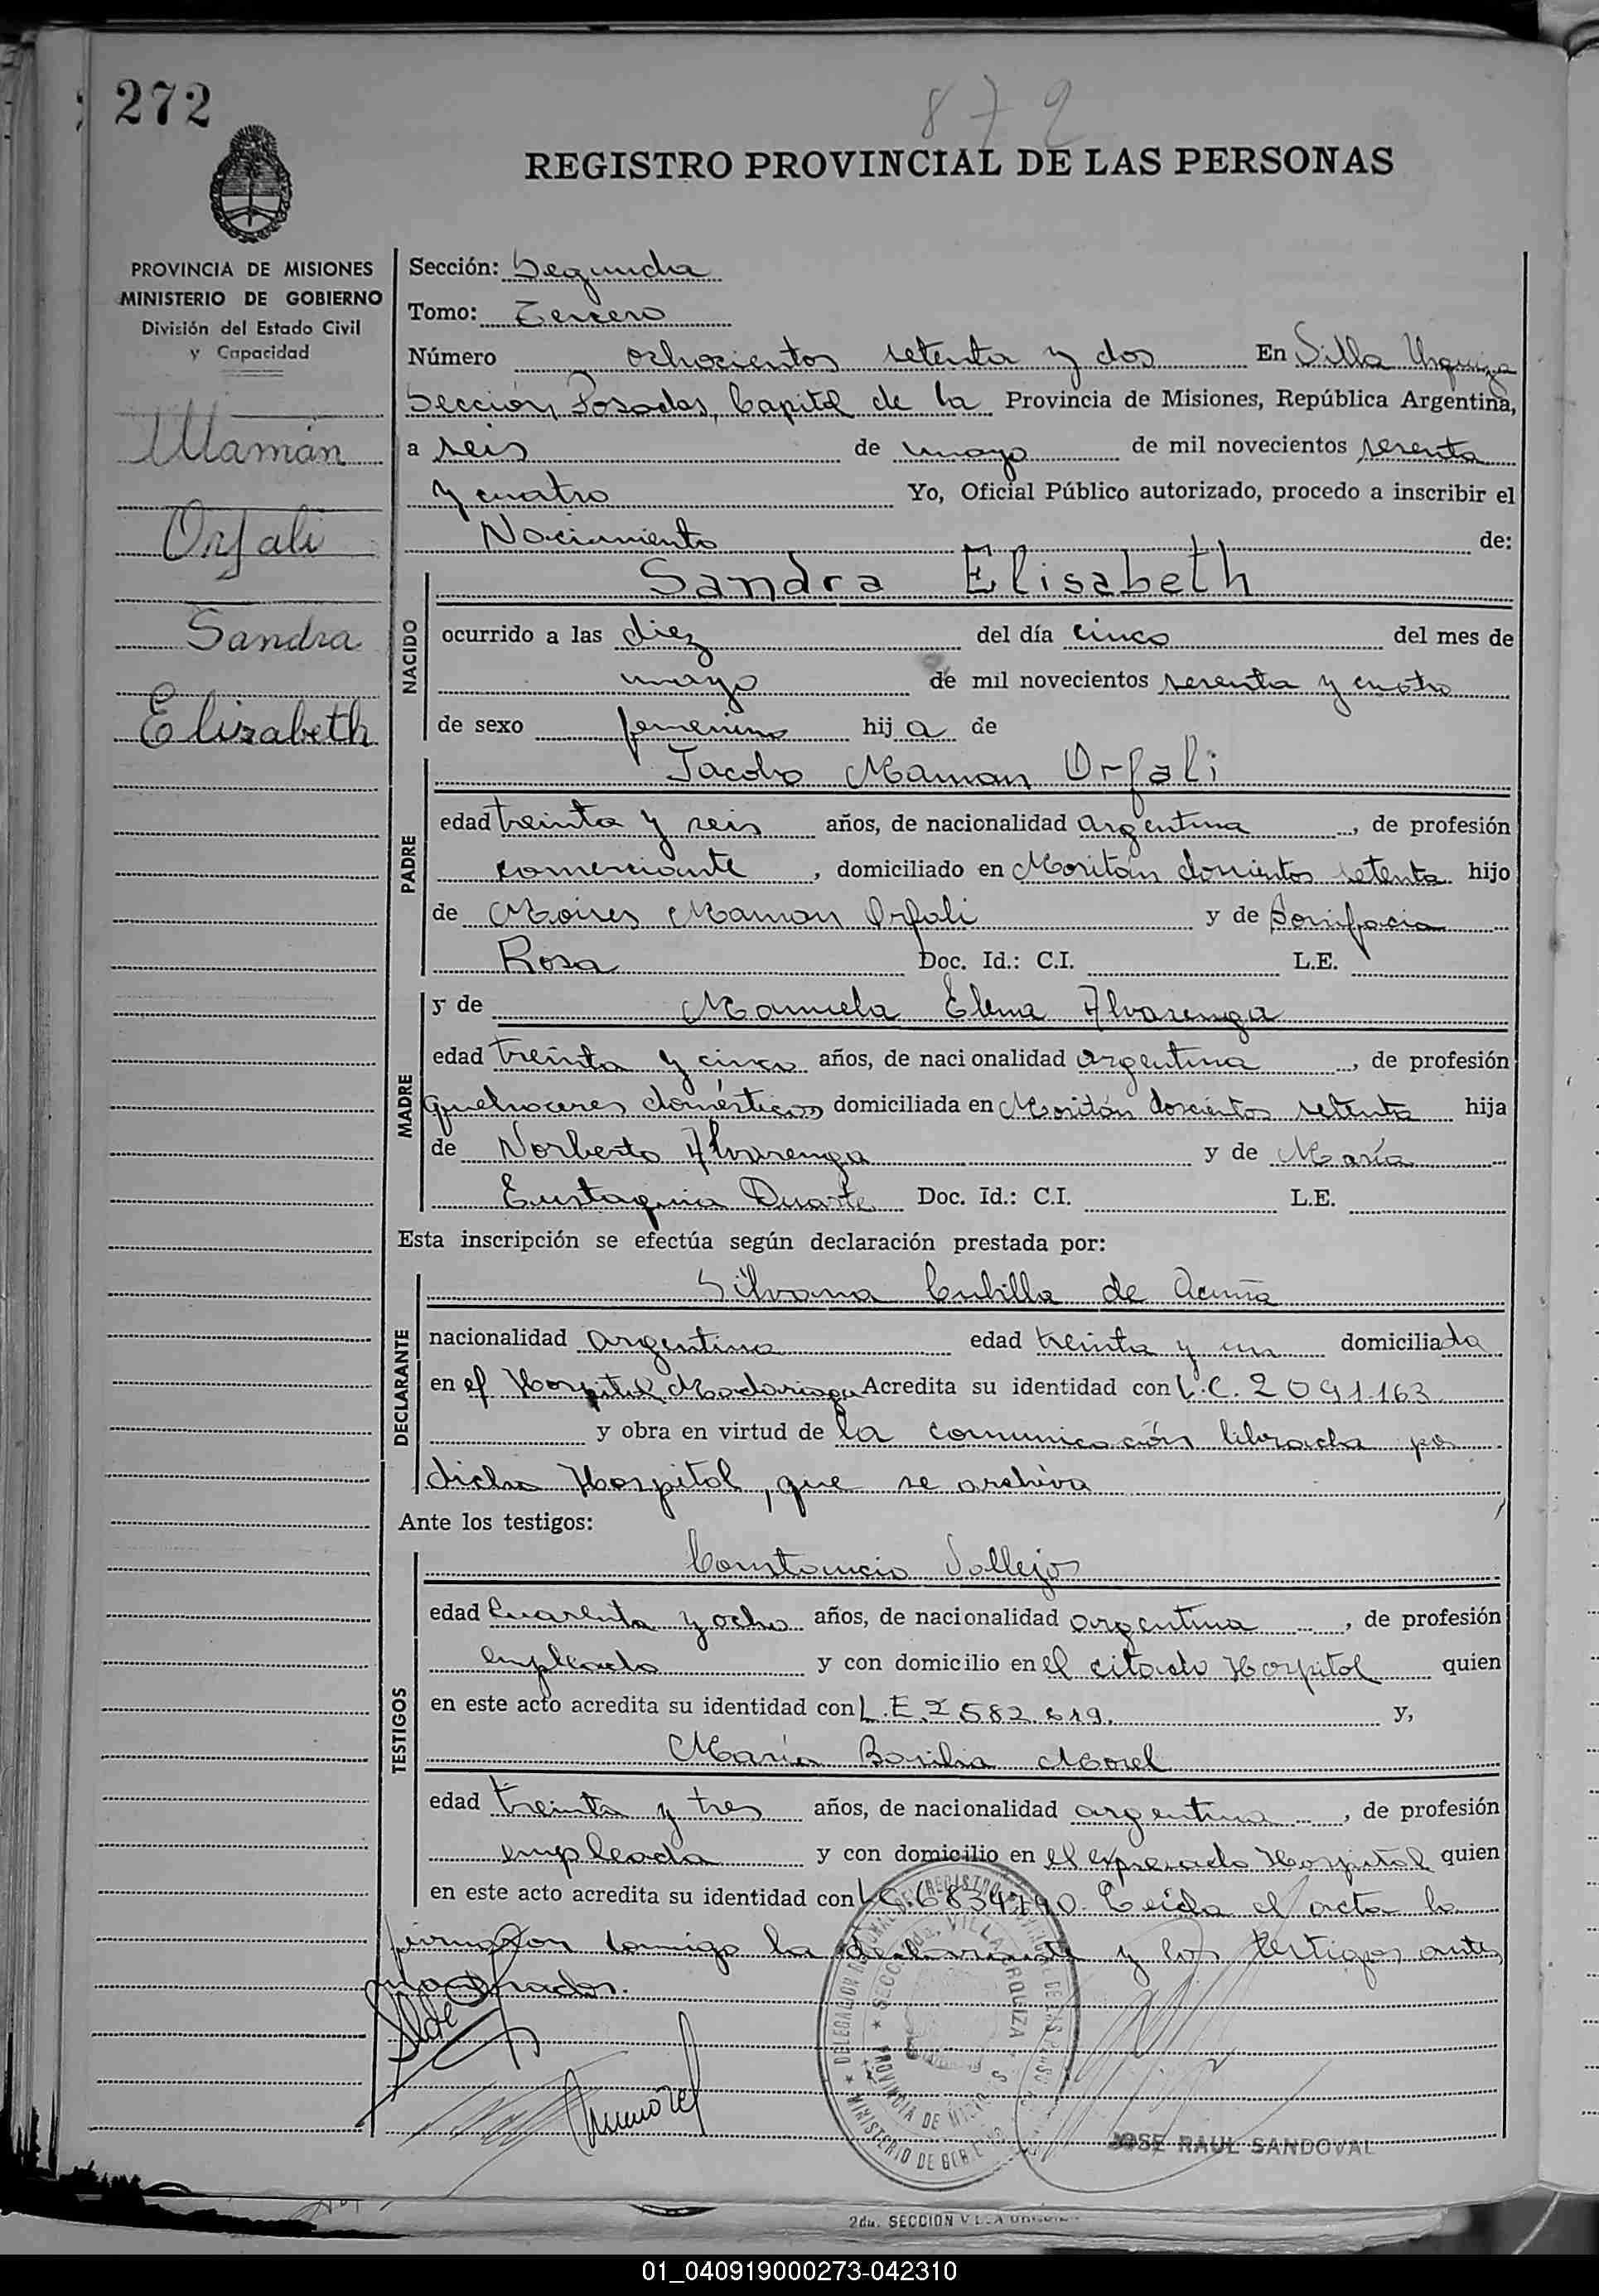 272
872
REGISTRO PROVINCIAL DE LAS PERSONAS
PROVINCIA DE MISIONES
MINISTERIO DE GOBIERNO
División del Estado Civil
y Capacidad
Mamán
Orfali
Sandra
Elizabeth
Sección: Segunda
Tomo: Tercero
Número ochocientos setenta y dos En Villa Urquiza
Sección, Posadas, Capital de la Provincia de Misiones, República Argentina,
a seis de mayo de mil novecientos sesenta
y cuatro Yo, Oficial Público autorizado, procedo a inscribir el
Nacimiento de:
NACIDO
Sandra Elisabeth
ocurrido a las diez del día cinco del mes de
mayo de mil novecientos sesenta y cuatro
de sexo femenino hija de
PADRE
Jacobo Maman Orfali
edad treinta y seis años, de nacionalidad argentina, de profesión
comerciante, domiciliado en Moritán doscientos setenta hijo
de Moises Maman Orfali y de Bonifacia
Rosa Doc. Id.: C.I. L.E.
MADRE
y de Manuela Elena Alvarenga
edad treinta y cinco años, de nacionalidad argentina, de profesión
quehaceres domésticos domiciliada en Moritán doscientos setenta hija
de Norberto Alvarenga y de María
Eustaquia Duarte Doc. Id.: C.I. L.E.
Esta inscripción se efectúa según declaración prestada por:
DECLARANTE
Silvana Cubilla de Acuña
nacionalidad argentina edad treinta y un domiciliada
en el Hospital Madariaga Acredita su identidad con L.C. 2091.163
y obra en virtud de la comunicación librada por
dicho Hospital, que se archiva
Ante los testigos:
TESTIGOS
Constancio Vallejos
edad cuarenta y ocho años, de nacionalidad argentina, de profesión
empleado y con domicilio en el citado Hospital quien
en este acto acredita su identidad con L.E. 2582.819. y,
María Basilia Morel
edad treinta y tres años, de nacionalidad argentina, de profesión
empleada y con domicilio en el expresado Hospital quien
en este acto acredita su identidad con L.C. 6834790. Leída el acta la
firmaron conmigo la declarante y los testigos antes
nombrados.
DELEGACION REGIONAL DEL REGISTRO PROVINCIAL DE LAS PERSONAS
MINISTERIO DE GOBIERNO
SECC. 2da. VILLA URQUIZA
PROVINCIA DE MISIONES
JOSE RAUL SANDOVAL
2da. SECCION
01_040919000273-042310